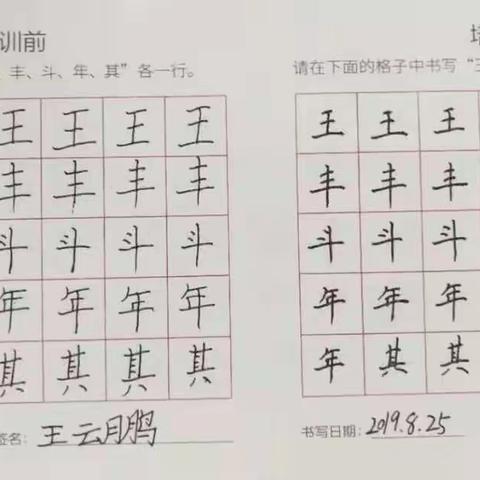 训前
、丰、斗、年、其”各一行。
王 王 王 王
丰 丰 丰 丰
斗 斗 斗 斗
年 年 年 年
其 其 其 其
签名：王云月鹏
请在下面的格子中书写“王
王 王 王
丰 丰 丰
斗 斗 斗
年 年 年
年 其 其
书写日期：2019.8.25